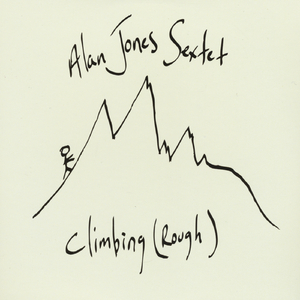 Alan Jones Sextet
Climbing (Rough)